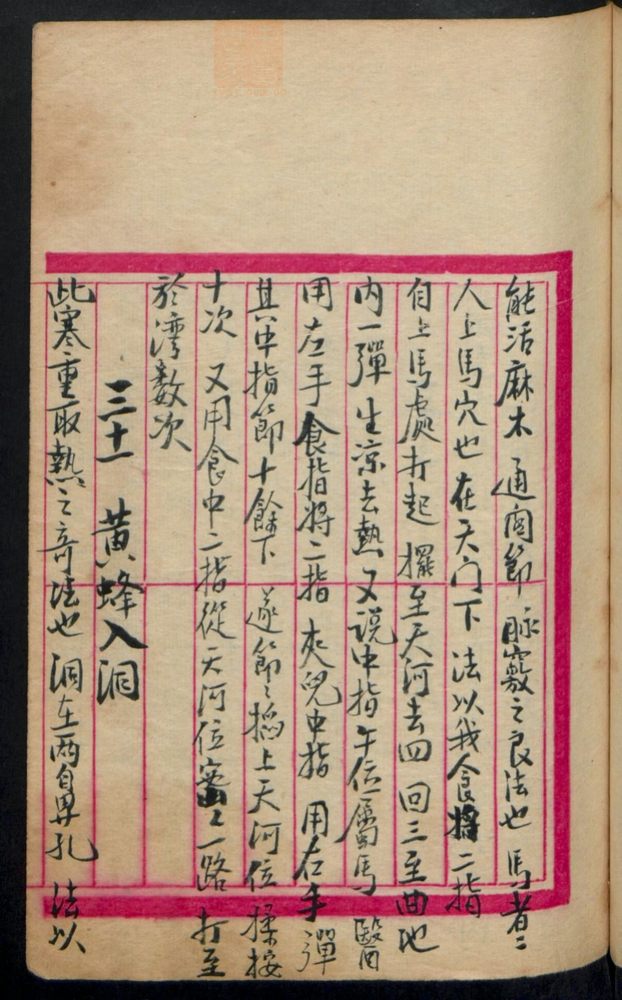 能活麻木 通関節脉竅之良法也 馬者二
人上馬穴也 在天门下 法以我食將二指
自上馬處打起 擺至天河去四回三至曲池
内一彈 生凉去熱 又説中指午位屬馬 醫
用左手食指將二指 夾兒中指 用右手彈
其中指節十餘下 遂節〻搯上天河位 揉按
十次 又用食中二指從天河位密〻一路打至
於灣數次
三十一 黄蜂入洞
此寒重取熱之奇法也 洞在兩鼻孔 法以